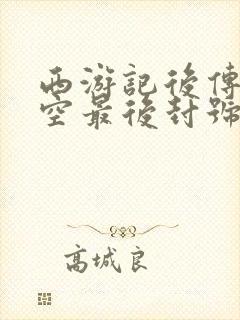 西游記後傳
空最後封號
高城良